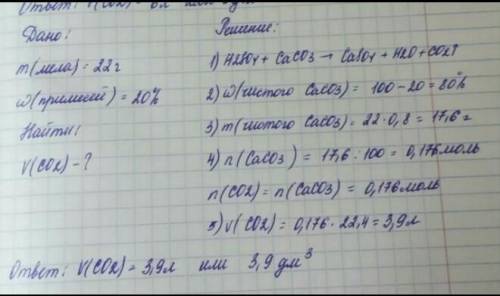 Ответ: V(CO2) =
Дано:
m(мела) = 22г
ω(примесей) = 20%
Найти:
V(CO2) - ?
Решение:
1) H2SO4 + CaCO3 → CaSO4 + H2O + CO2↑
2) ω(чистого CaCO3) = 100 - 20 = 80%
3) m(чистого CaCO3) = 22 · 0,8 = 17,6г
4) n(CaCO3) = 17,6 : 100 = 0,176 моль
n(CO2) = n(CaCO3) = 0,176 моль
5) V(CO2) = 0,176 · 22,4 = 3,9л
Ответ: V(CO2) = 3,9л или 3,9 дм³